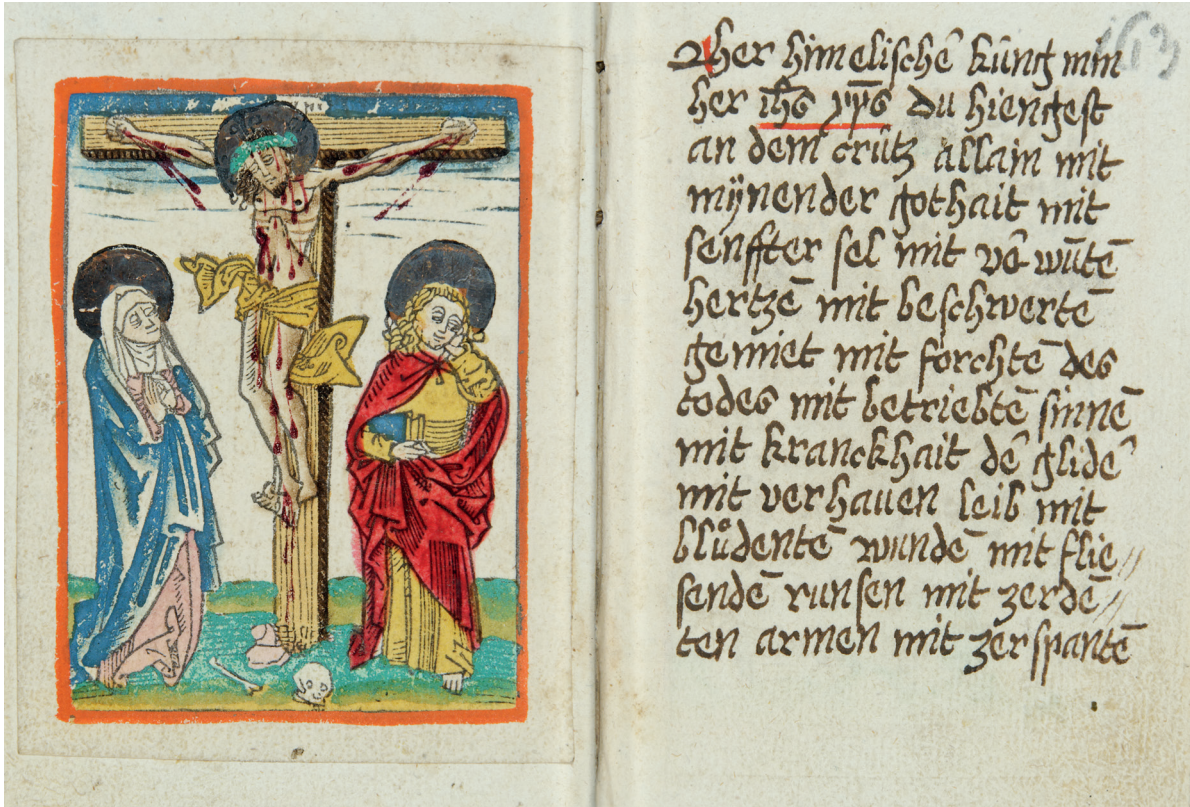 O her himelischē küng min
her ihs xps du hiengest
an dem crütz allain mit
mÿnender gothait mit
senffter sel mit vē wūtē
hertzē mit beschwertē
gemiet mit forchtē des
todes mit betriebtē sinnē
mit kranckhait dē glidē
mit verhauen leib mit
blůdentē wundē mit flie//
sendē runsen mit zerdē//
ten armen mit zerspantē